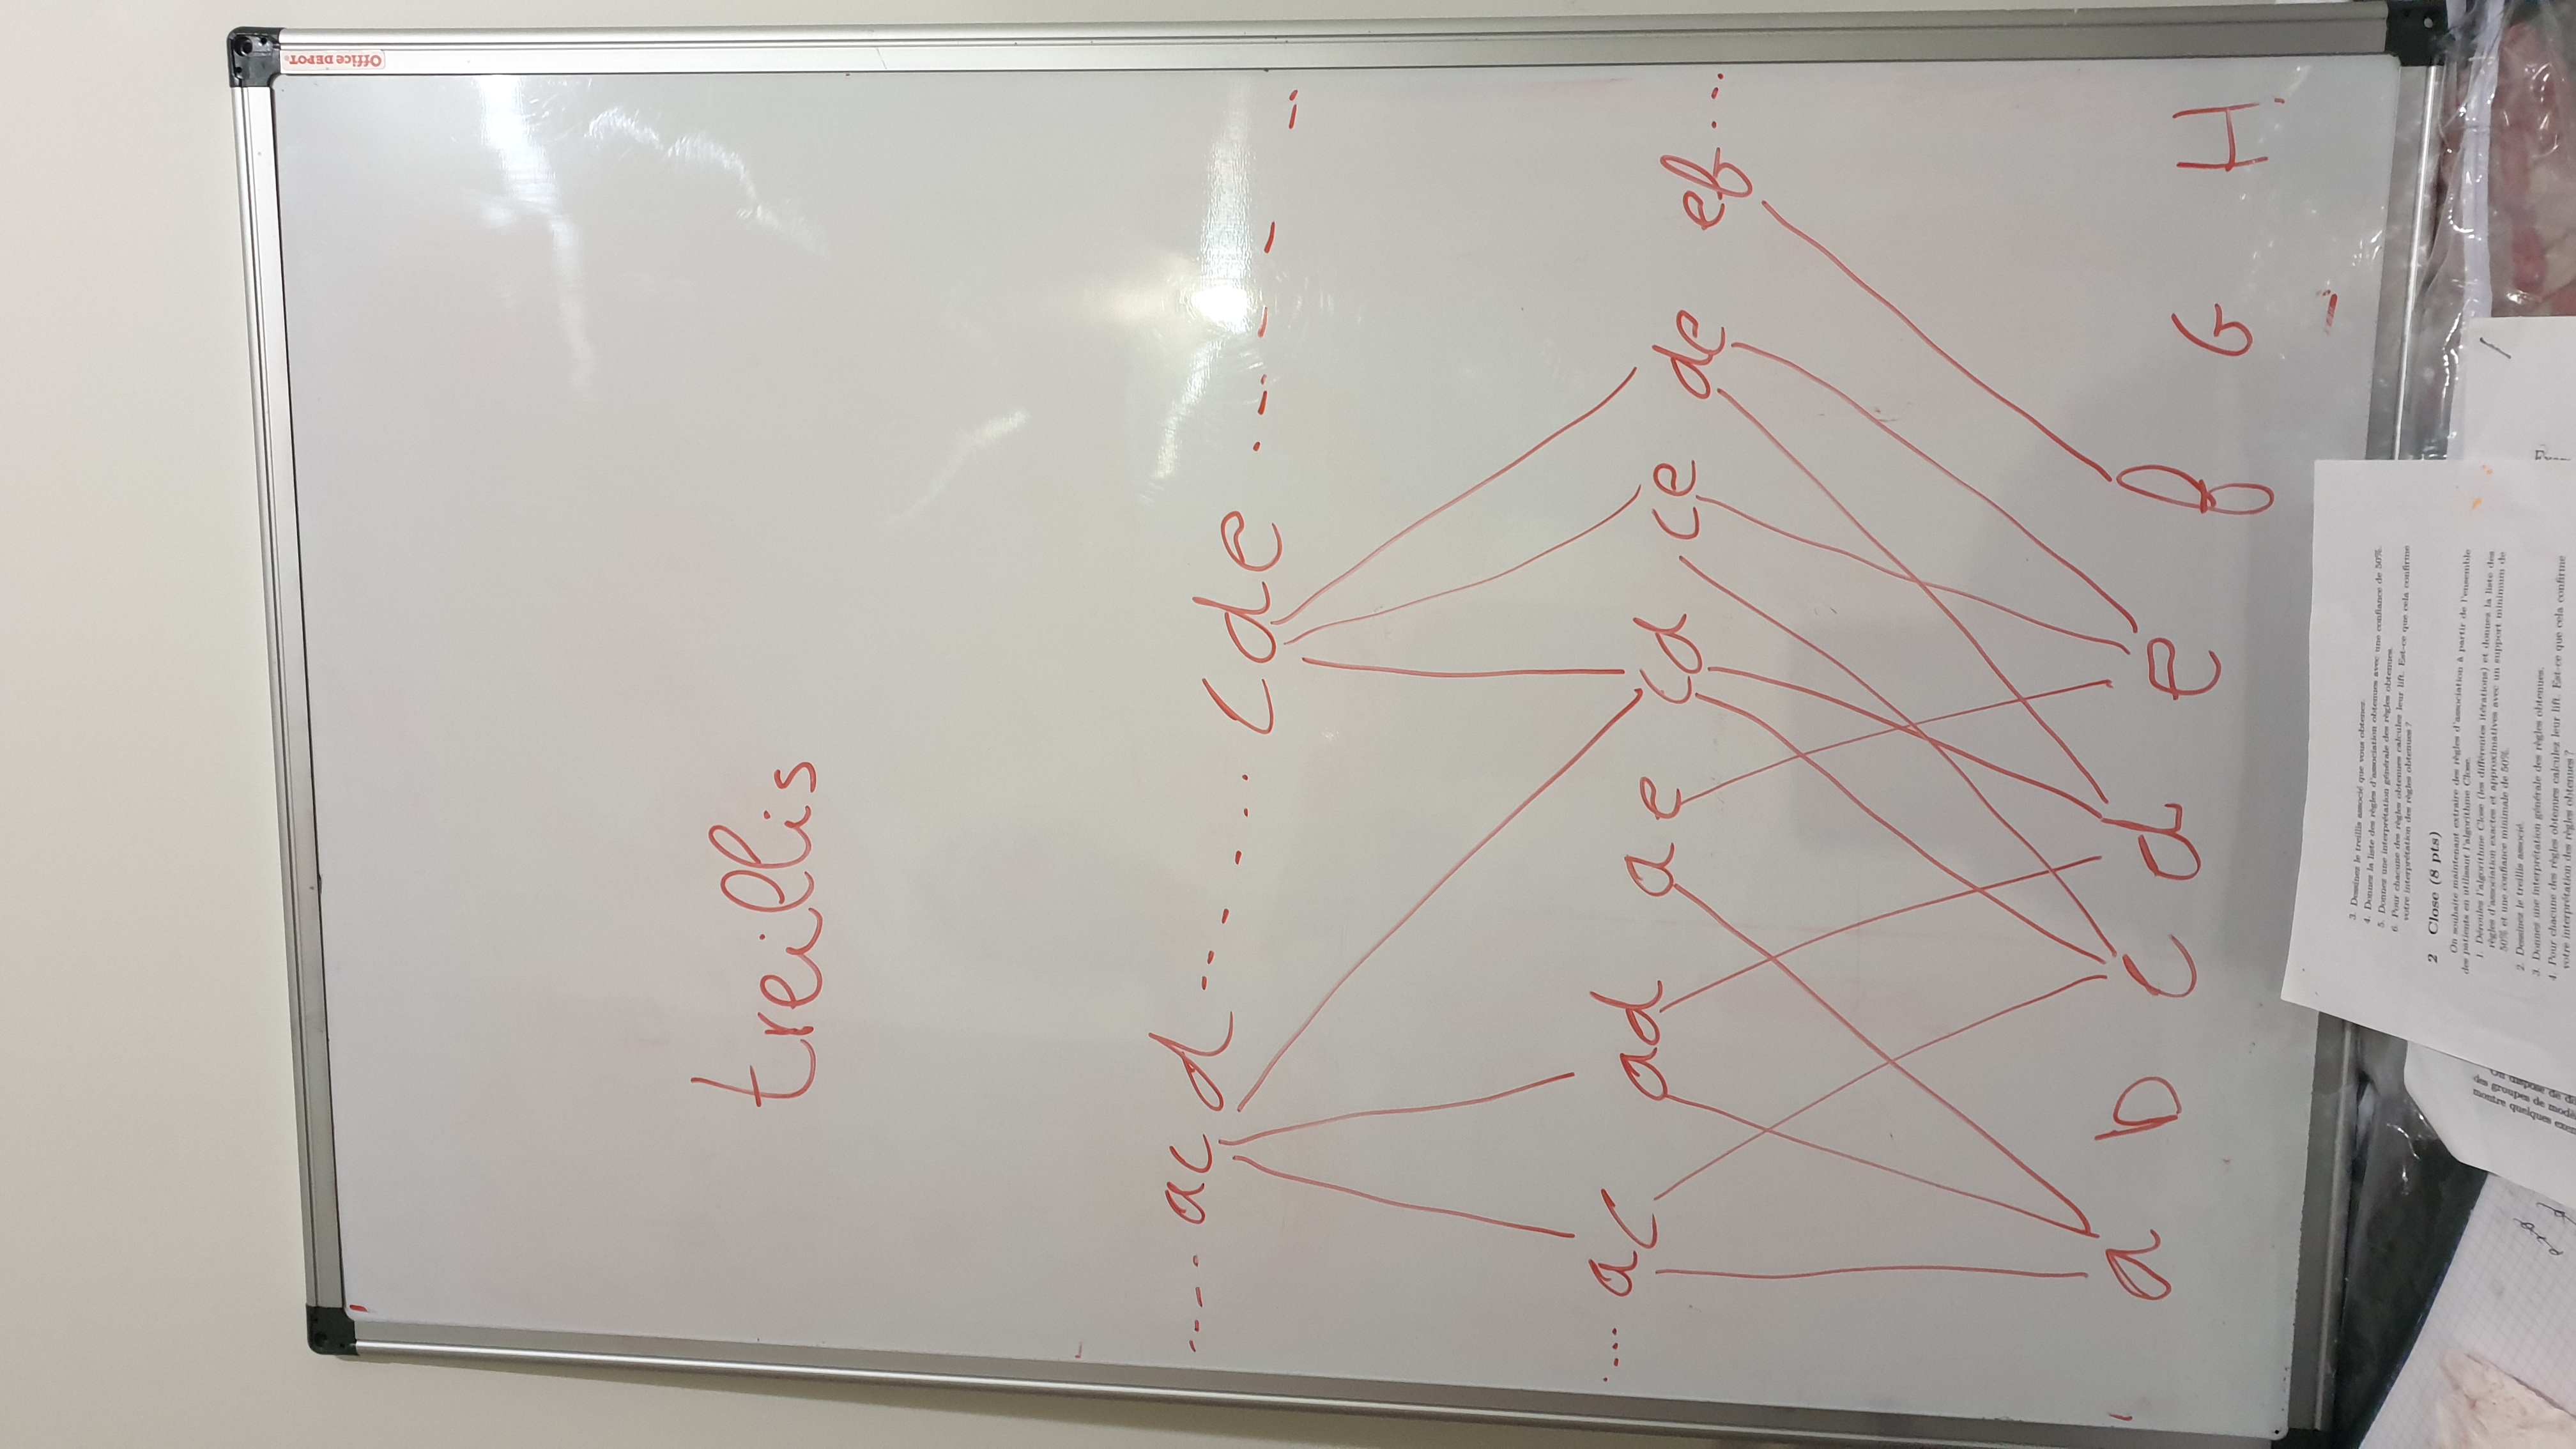 Office DEPOT
treillis
.... acd --- .... cde .----
.... ac ad ae cd ce de ef ...
a b c d e f G H
3. Dessinez le treillis associé que vous obtenez.
4. Donnez la liste des règles d'association obtenues avec une confiance de 50%.
5. Donnez une interprétation générale des règles obtenues.
6. Pour chacune des règles obtenues calculez leur lift. Est-ce que cela confirme
votre interprétation des règles obtenues ?
2 Close (8 pts)
On souhaite maintenant extraire des règles d'association à partir de l'ensemble
des patients en utilisant l'algorithme Close.
1. Déroulez l'algorithme Close (les différentes itérations) et donnez la liste des
règles d'association exactes et approximatives avec un support minimum de
50% et une confiance minimale de 50%.
2. Dessinez le treillis associé.
3. Donnez une interprétation générale des règles obtenues.
4. Pour chacune des règles obtenues calculez leur lift. Est-ce que cela confirme
votre interprétation des règles obtenues ?